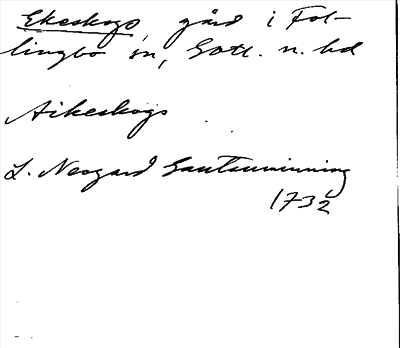 Ekeskogs gård i Fol-
lingbo sn, Gotl. n. hd
Aikeskogs
L. Neogard Gautauminning
1732